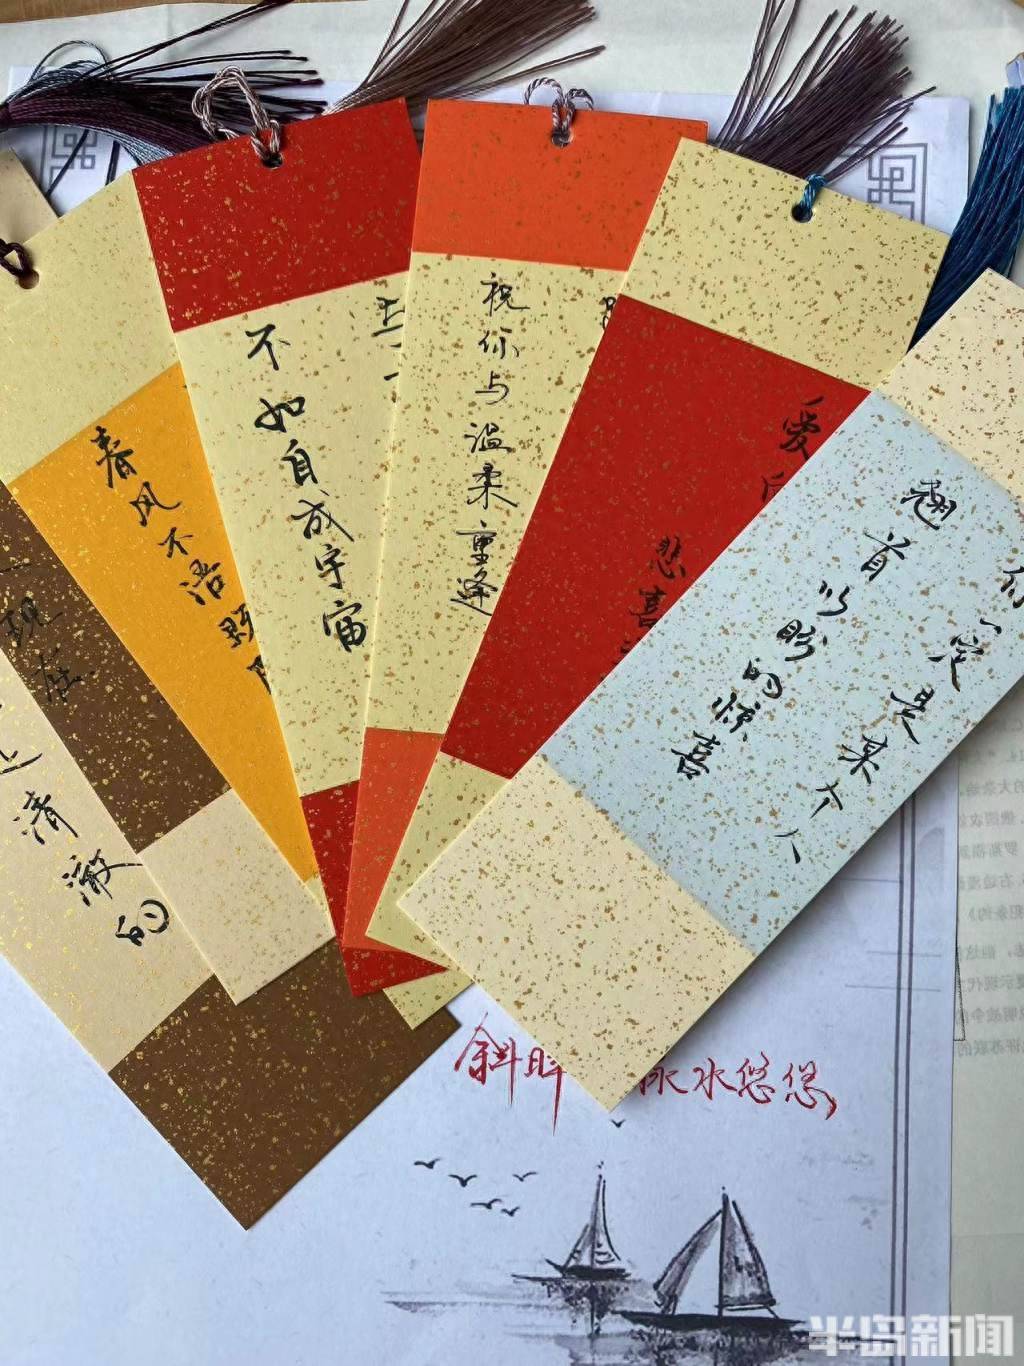 现在
清澈的
春风不语
不如自成宇宙
祝你与温柔重逢
爱
悲喜
你一定是某个人
翘首以盼的惊喜
斜晖脉水悠悠
半岛新闻